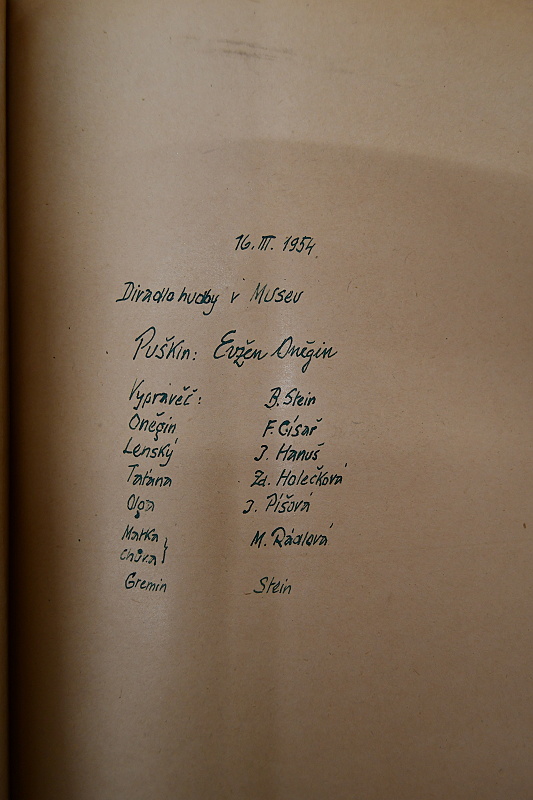 16. III. 1954
Divadlo hudby v Museu
Puškin: Evžen Oněgin
Vypravěč: B. Stein
Oněgin F. Císař
Lenský J. Hanuš
Taťána Zd. Holečková
Olga J. Píšová
Matka } M. Rádlová
Chůva
Gremin Stein